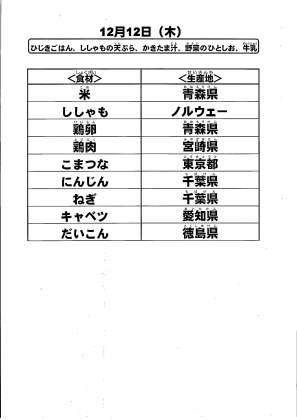 12月12日（木）
ひじきごはん、ししゃもの天ぷら、かきたま汁、野菜のひとしお、牛乳
＜食材＞ ＜生産地＞
米 青森県
ししゃも ノルウェー
鶏卵 青森県
鶏肉 宮崎県
こまつな 東京都
にんじん 千葉県
ねぎ 千葉県
キャベツ 愛知県
だいこん 徳島県